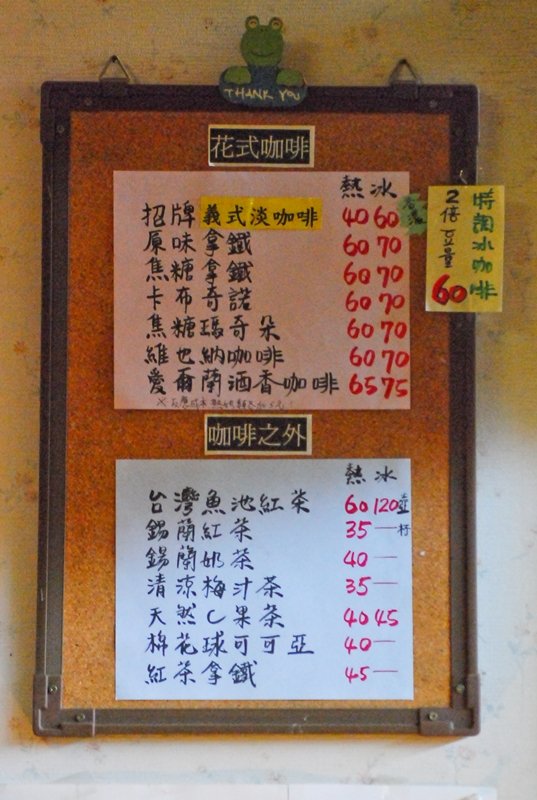 THANK YOU
花式咖啡
熱 冰
招牌義式淡咖啡 40 60
原味拿鐵 60 70
焦糖拿鐵 60 70
卡布奇諾 60 70
焦糖瑪奇朵 60 70
維也納咖啡 60 70
愛爾蘭酒香咖啡 65 75
特調冰咖啡
2倍豆量
60
咖啡之外
熱 冰
台灣魚池紅茶 60 120壺
杯
錫蘭紅茶 35 —
錫蘭奶茶 40 —
清涼梅汁茶 35 —
天然C果茶 40 45
棉花球可可亞 40 —
紅茶拿鐵 45 —